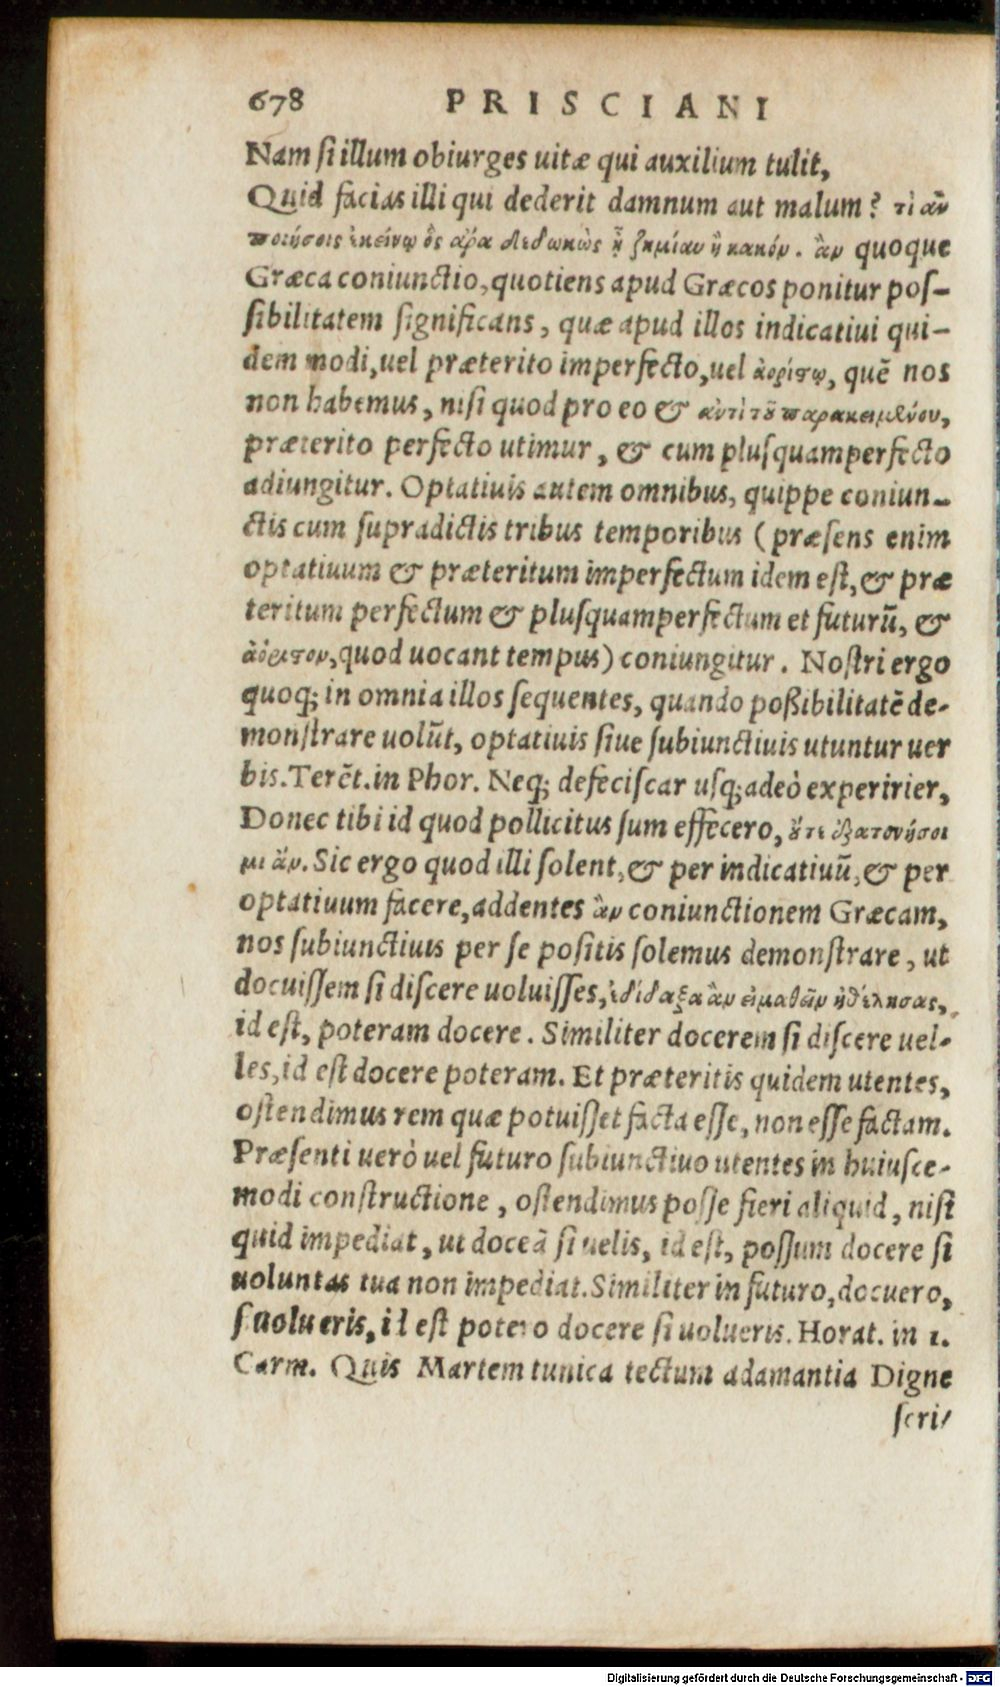 678 PRISCIANI
Nam si illum obiurges uitæ qui auxilium tulit,
Quid facias illi qui dederit damnum aut malum? τὶ ἂν
ποιήσοις ἐκείνῳ ὃς ἄρα διδωκὼς ἢ ζημίαν ἢ κακόν. ἂν quoque
Græca coniunctio, quotiens apud Græcos ponitur pos-
sibilitatem significans, quæ apud illos indicatiui qui-
dem modi, uel præterito imperfecto, uel ἀορίστῳ, quẽ nos
non habemus, nisi quod pro eo & ἀντὶ τοῦ παρακειμένου,
præterito perfecto utimur, & cum plusquamperfecto
adiungitur. Optatiuis autem omnibus, quippe coniun-
ctis cum supradictis tribus temporibus (præsens enim
optatiuum & præteritum imperfectum idem est, & præ
teritum perfectum & plusquamperfectum et futurũ, &
ἀόριστον, quod uocant tempus) coniungitur. Nostri ergo
quoq; in omnia illos sequentes, quando possibilitatẽ de-
monstrare uolũt, optatiuis siue subiunctiuis utuntur uer
bis. Terẽt. in Phor. Neq; defeciscar usq; adeò experirier,
Donec tibi id quod pollicitus sum effecero, ὅτι ἐξατονήσοι
μι ἄν. Sic ergo quod illi solent, & per indicatiuũ, & per
optatiuum facere, addentes ἂν coniunctionem Græcam,
nos subiunctiuis per se positis solemus demonstrare, ut
docuissem si discere uoluisses, ἐδίδαξα ἂν εἰ μαθεῖν ἠθέλησας,
id est, poteram docere. Similiter docerem si discere uel-
les, id est docere poteram. Et præteritis quidem utentes,
ostendimus rem quæ potuisset facta esse, non esse factam.
Præsenti uerò uel futuro subiunctiuo utentes in huiusce-
modi constructione, ostendimus posse fieri aliquid, nisi
quid impediat, ut doceã si uelis, id est, possum docere si
uoluntas tua non impediat. Similiter in futuro, docuero,
si uolueris, id est potero docere si uolueris. Horat. in 1.
Carm. Quis Martem tunica tectum adamantia Digne
scri-
Digitalisierung gefördert durch die Deutsche Forschungsgemeinschaft - DFG